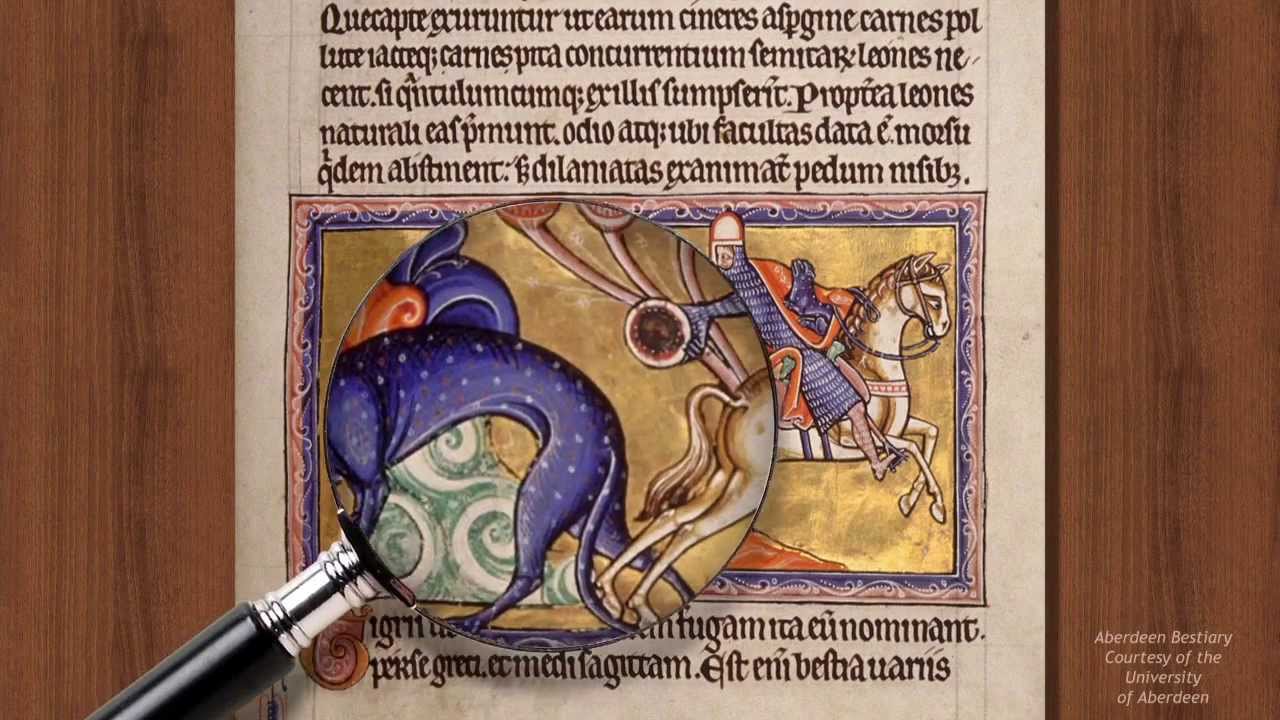 Que capte exuruntur ut earum cineres aspgine carnes pol
lute iacteq; carnes p̱ita concurrentium semitaꝝ leones ne
cent. si qͣntulumcumq; ex illis sumpserīt. Propt̄ea leones
naturali eas p̄munt. odio atq; ubi facultas data ē. morsu
qͥdem abstinent: sꝫ dilaniatas exanimat̄ pedum nisibꝫ.
fugam ita eū nominant.
perse greci. et medi sagittam. Est eni bestia uariis
Aberdeen Bestiary
Courtesy of the
University
of Aberdeen